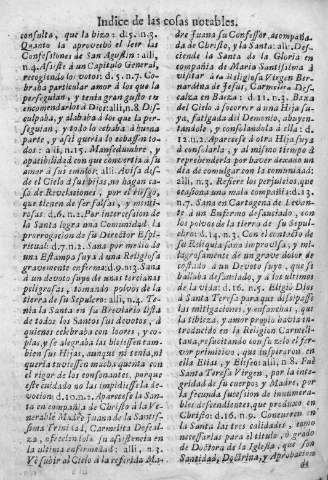 Indice de las cosas notables.
consulta, que la hizo: d.5. n.3.
Quanto la aprovechò el leer las
Confessiones de San Agustin: alli,
n.4. Assiste à un Capitulo General,
recogiendo los votos: d.5. n.7. Co-
braba particular amor à los que la
perseguian, y tenia gran gusto en
encomendarlos à Dios: alli, n.8. Dis-
culpaba, y alababa à los que la per-
seguian, y todo lo echaba à buena
parte, y assi quería lo echassen to-
dos: alli, n.11. Mansedumbre, y
apacibilidad con que convertia à su
amor à sus emulos: alli. Avisa des-
de el Cielo à sus hijas, no hagan ca-
so de Revelaciones, por el riesgo,
que tienen de ser falsas, y menti-
rosas: d.6. n.2. Por intercession de
la Santa logra una Comunidad la
prorrogacion de su Director Espi-
ritual: d.7. n.2. Sana por medio de
una Estampa suya à una Religiosa
gravemente enferma: d.9. n.3. Sana à
un devoto suyo de unas tercianas
peligrosas, tomando polvos de la
tierra de su Sepulcro: alli, n.4. Te-
nia la Santa en su Breviario lista
de todos los Santos sus devotos, à
quienes celebraba con loores, y co-
plas, y se alegraba las hiziessen tam-
bien sus Hijas, aunque ni tenia, ni
queria tuviessen mucha quenta con
el rigor de los consonantes, porque
este cuidado no las impidiesse la de-
vocion: d.10. n.2. Aparecese la San-
ta en compañia de Christo à la Ve-
nerable Madre Juana de la Santis-
sima Trinidad, Carmelita Descal-
za, ofreciendola su assistencia en
la ultima enfermedad: alli, n.3.
Vè subir al Cielo à la referida Ma-
dre Juana su Confessor, acompaña-
da de Christo, y la Santa: alli. Des-
ciende la Santa de la Gloria en
compañia de Maria Santissima à
visitar à la Religiosa Virgen Ber-
nardina de Jesus, Carmelita Des-
calza en Baeza: d.11. n.2. Baxa
del Cielo à socorrer à una Hija su-
ya, fatigada del Demonio, ahuyen-
tandole, y consolandola à ella: d.
12. n.1. Aparecese à otra Hija suya
à consolarla, y al mismo tiempo à
reprehenderla por haver dexado un
dia de comulgar con la comunidad:
alli, n.2. Refiere los perjuicios, que
ocasiona una mala compañia: d.13.
n.7. Sana en Cartagena de Levan-
te à un Enfermo desauciado, con
los polvos de la tierra de su Sepul-
cro: d.14. n.3. Con el contacto de
su Reliquia sana improvisa, y mi-
lagrosamente de un grave dolor de
costado à un Devoto suyo, que se
hallaba desauciado, y à los ultimos
de la vida: d.16. n.5. Eligiò Dios
à Santa Teresa para que dissipasse
las mitigaciones, y ensanches, que
la tibieza, y amor proprio havia in-
troducido en la Religion Carmeli-
tana, resucitando con su zelo el fer-
vor primitivo, que inspiraron en
ella Elias, y Eliseo: alli, n.8. Fuè
Santa Teresa Virgen, por la inte-
gridad de su cuerpo, y Madre, por
la fecunda sucession de innumera-
bles descendientes, que produxo en
Christo: d.16. n.9. Concurren en
la Santa las tres calidades, como
necessarias para el titulo, ò grado
de Doctora de la Iglesia, que son
Santidad, Doctrina, y Aprobacion
de